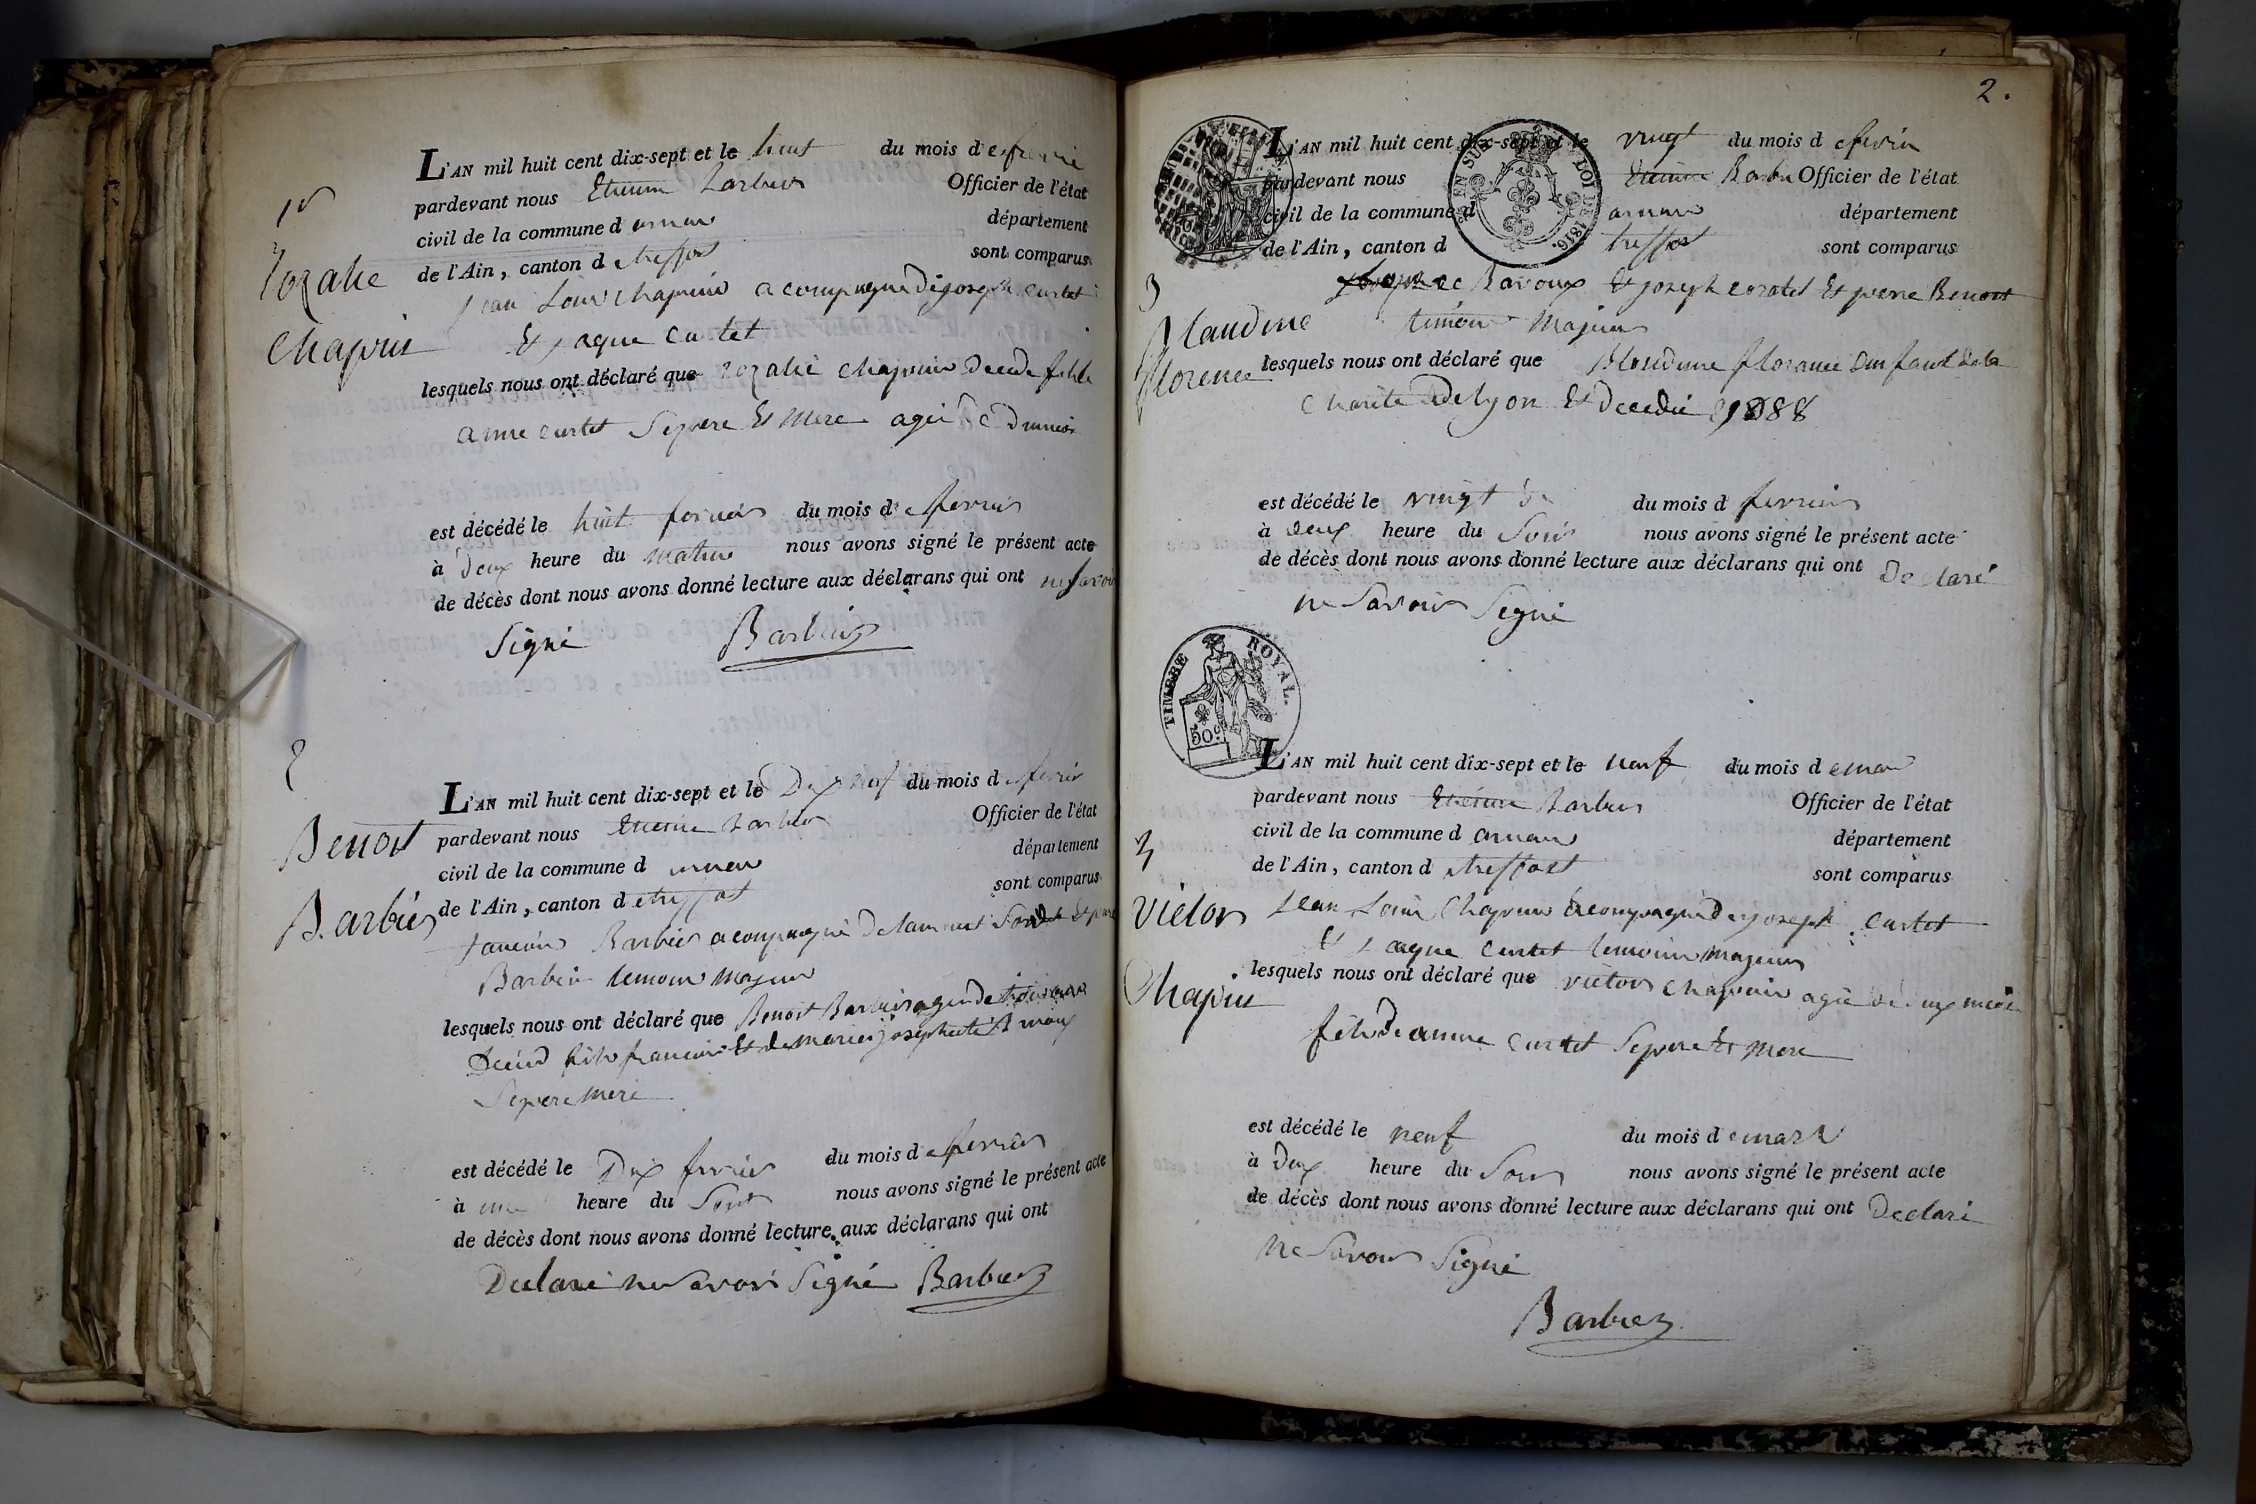 1r
rozalie
Chapuis
L'AN mil huit cent dix-sept et le huit du mois de fevrie
pardevant nous Etienne Barbier Officier de l'état
civil de la commune d arnan département
de l'Ain, canton d etreffort sont comparus
jean Louis Chapuis acompagne de joseph curtet
Et jaque Curtet
lesquels nous ont déclaré que rozalie chapuis Decede fille
anne curtet Se pere Et Mere agee de
est décédé le huit fevrier du mois de fevrier
à deux heure du matin nous avons signé le présent acte
de décès dont nous avons donné lecture aux déclarans qui ont ne savoir
Signé Barbier
2
Benoit
Barbier
L'AN mil huit cent dix-sept et le Dix neuf du mois de fevrier
pardevant nous Etienne Barbier Officier de l'état
civil de la commune d arnan département
de l'Ain, canton d etreffort sont comparus
francois Barbier acompagne de
Barbier temoin majeur
lesquels nous ont déclaré que Benoit Barbier age de trois ans
Decede fils francois Et de marie josephte
Se pere mere
est décédé le Dix fevrier du mois de fevrier
à une heure du Soir nous avons signé le présent acte
de décès dont nous avons donné lecture aux déclarans qui ont
Declare ne savoir Signé Barbier
2.
3
Claudine
florence
L'AN mil huit cent dix-sept et le vingt du mois de fevrier
pardevant nous Etienne Barbie Officier de l'état
civil de la commune d arnan département
de l'Ain, canton d treffort sont comparus
Bavoux Et joseph Et pierre Benoit
temoin Majeur
lesquels nous ont déclaré que Claudine florance Enfant de la
Charite de lyon Et Decedé
est décédé le vingt du mois d fevrier
à deux heure du Soir nous avons signé le présent acte
de décès dont nous avons donné lecture aux déclarans qui ont Declaré
ne Savoir Signé
EN SUS LOI DE 1816.
TIMBRE ROYAL.
50c
3
Victor
Chapuis
L'AN mil huit cent dix-sept et le neuf du mois de mar
pardevant nous Etienne Barbier Officier de l'état
civil de la commune d arnan département
de l'Ain, canton d etreffort sont comparus
Jean Louis Chapuis acompagné de joseph curtet
Et jaque Curtet temoin majeur
lesquels nous ont déclaré que victor Chapuis agé de deux mois
fils de anne Curtet Se pere Et Mere
est décédé le neuf du mois de mars
à Deux heure du Soir nous avons signé le présent acte
de décès dont nous avons donné lecture aux déclarans qui ont Declaré
ne Savoir Signé
Barbier